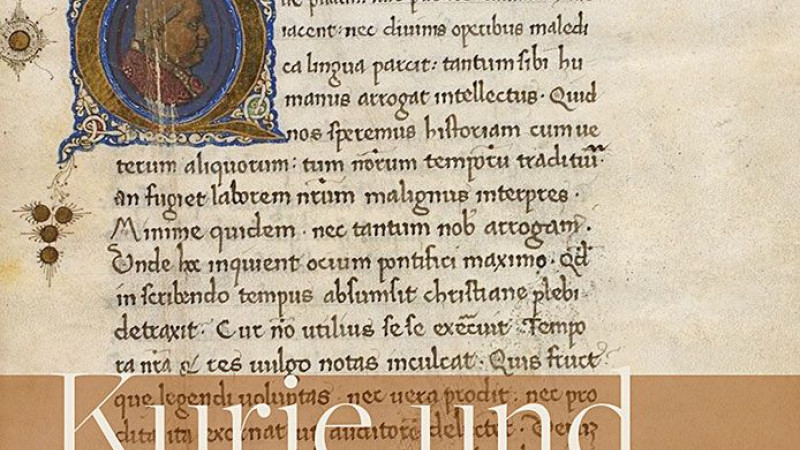 iacent: nec diuinis operibus maledi
ca lingua parcit: tantum sibi hu
manus arrogat intellectus. Quid
nos speremus historiam cum ue
terum aliquorum: tum nr̄orum temporū traditur̄
an fugiet laborem nr̄um malignus interpres.
Minime quidem. nec tantum nob̄ arrogam̄.
Unde hec inquient ocium pontifici maximo. Qd̄
in scribendo tempus absumsit christiane plebi
detraxit. Cur nō utilius se se exercuit. Tempo
ra nr̄a & res uulgo notas inculcat. Quis fruct᷒
que legendi uoluptas. nec uera prodit. nec pro
dita ita exornat ut auditorē delectet.
Kurie und